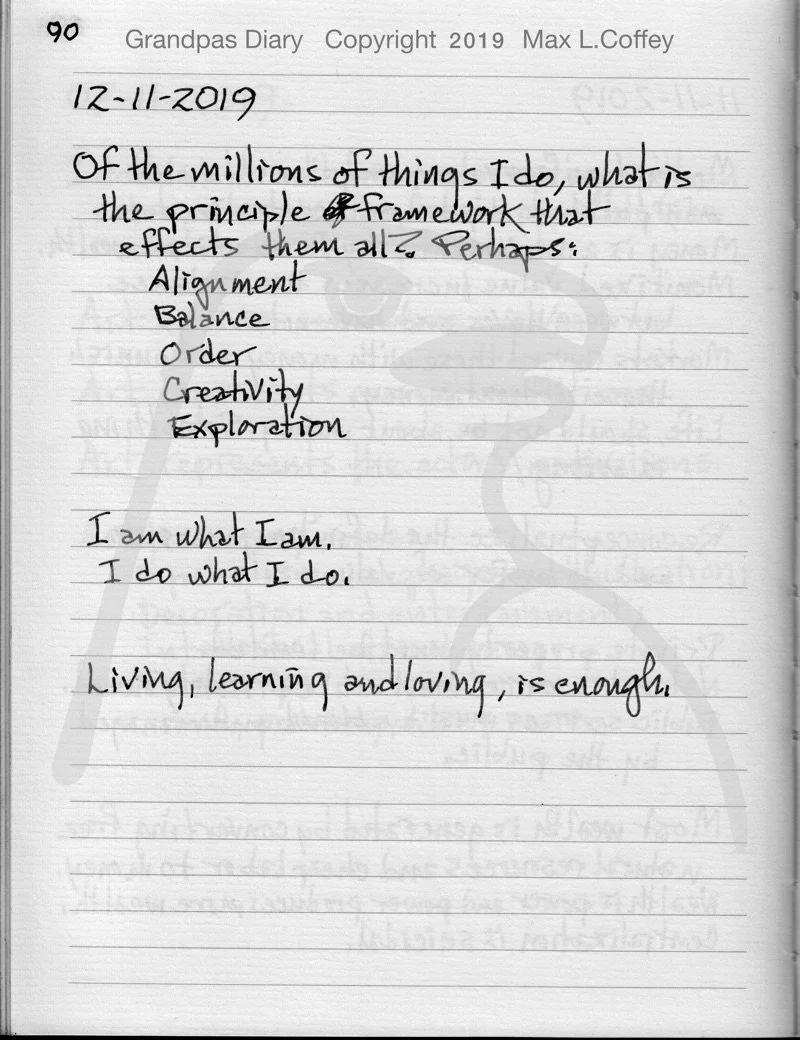 90
Grandpas Diary Copyright 2019 Max L.Coffey
12-11-2019
Of the millions of things I do, what is
the principle framework that
effects them all? Perhaps:
Alignment
Balance
Order
Creativity
Exploration
I am what I am.
I do what I do.
Living, learning and loving, is enough.